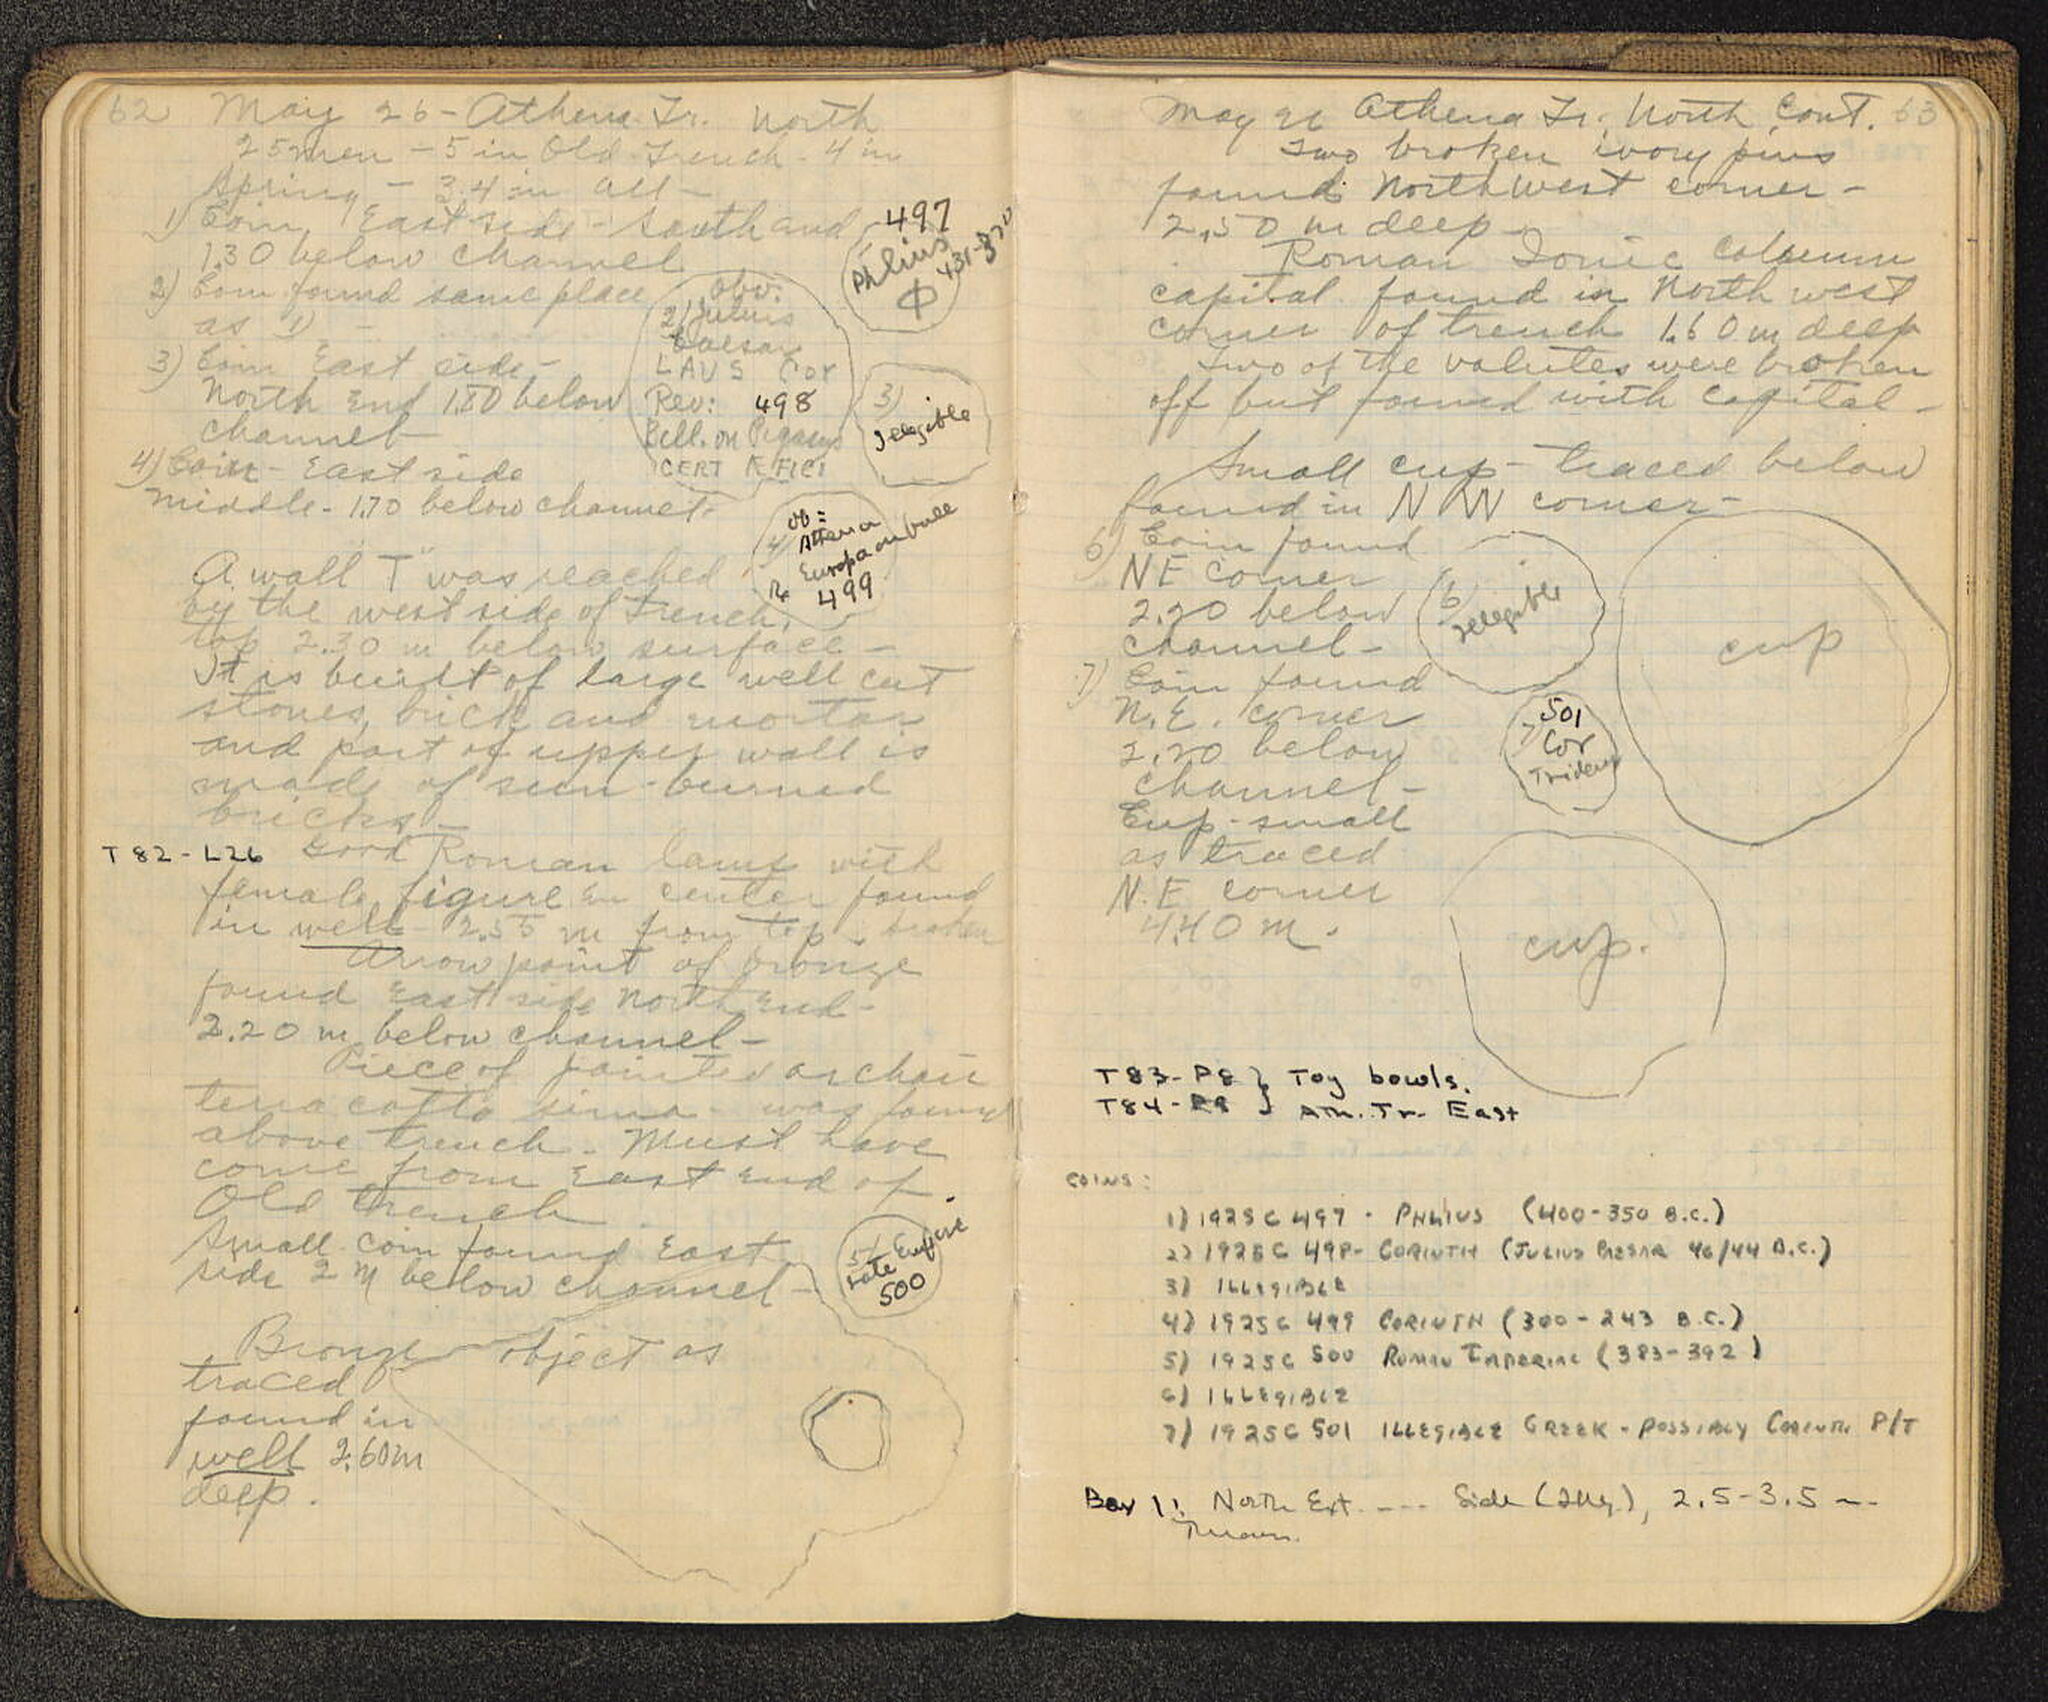 62 May 26 - Athena Tr. North
25 men - 5 in Old Trench - 4 in
Spring - 34 in all -
1) Coin East side - South end
1.30 below channel
497
Phlius
Φ
2) Coin found same place
as 1) -
obv.
2) Julius
Caesar
LAVS COR
Rev: 498
Bell. on Pegasus
CERT AEFICI
3) Coin East side -
North End 1.80 below
channel
3)
Illegible
4) Coin - East side
middle - 1.70 below channel -
4)
Europa on bull
499
A wall "T" was reached
by the west side of trench,
top 2.30 m below surface -
It is built of large well cut
stones, brick and mortar
and part of upper wall is
made of sun-burned
bricks -
T82-L26 Good Roman lamp with
female figure in center found
in well - 2.55 m from top - broken
Arrow point of bronze
found East side North End -
2.20 m below channel -
Piece of painted archaic
terra cotta sima - was found
above trench - Must have
come from East end of
Old trench.
Small coin found East
side 2 M below channel -
5)
Late Empire
500
Bronze object as
traced
found in
well 2.60 m
deep.
May 26 Athena Tr. North Cont. 63
Two broken ivory pins
found Northwest corner -
2.50 m deep -
Roman Ionic column
capital found in North west
corner of trench 1.60 m deep
Two of the volutes were broken
off but found with capital -
Small cup - traced below
found in NW corner -
6) Coin found
NE corner
2.20 below
channel -
6)
Illegible
cup
7) Coin found
N.E. corner
2.20 below
channel -
501
7) Cor
Trident
Cup - small
as traced
N.E corner
4.40 m.
cup.
T83-P8 } Toy bowls.
T84-P9 } Ath. Tr. East
COINS:
1) 1925 C 497 - PHLIUS (400-350 B.C.)
2) 1925C 498- CORINTH (JULIUS CAESAR 46/44 B.C.)
3) ILLEGIBLE
4) 1925C 499 CORINTH (300-243 B.C.)
5) 1925C 500 ROMAN IMPERIAL (383-392)
6) ILLEGIBLE
7) 1925C 501 ILLEGIBLE GREEK - POSSIBLY CORINTH P/T
Box 1: North Ext. ---- Side (), 2.5-3.5 m